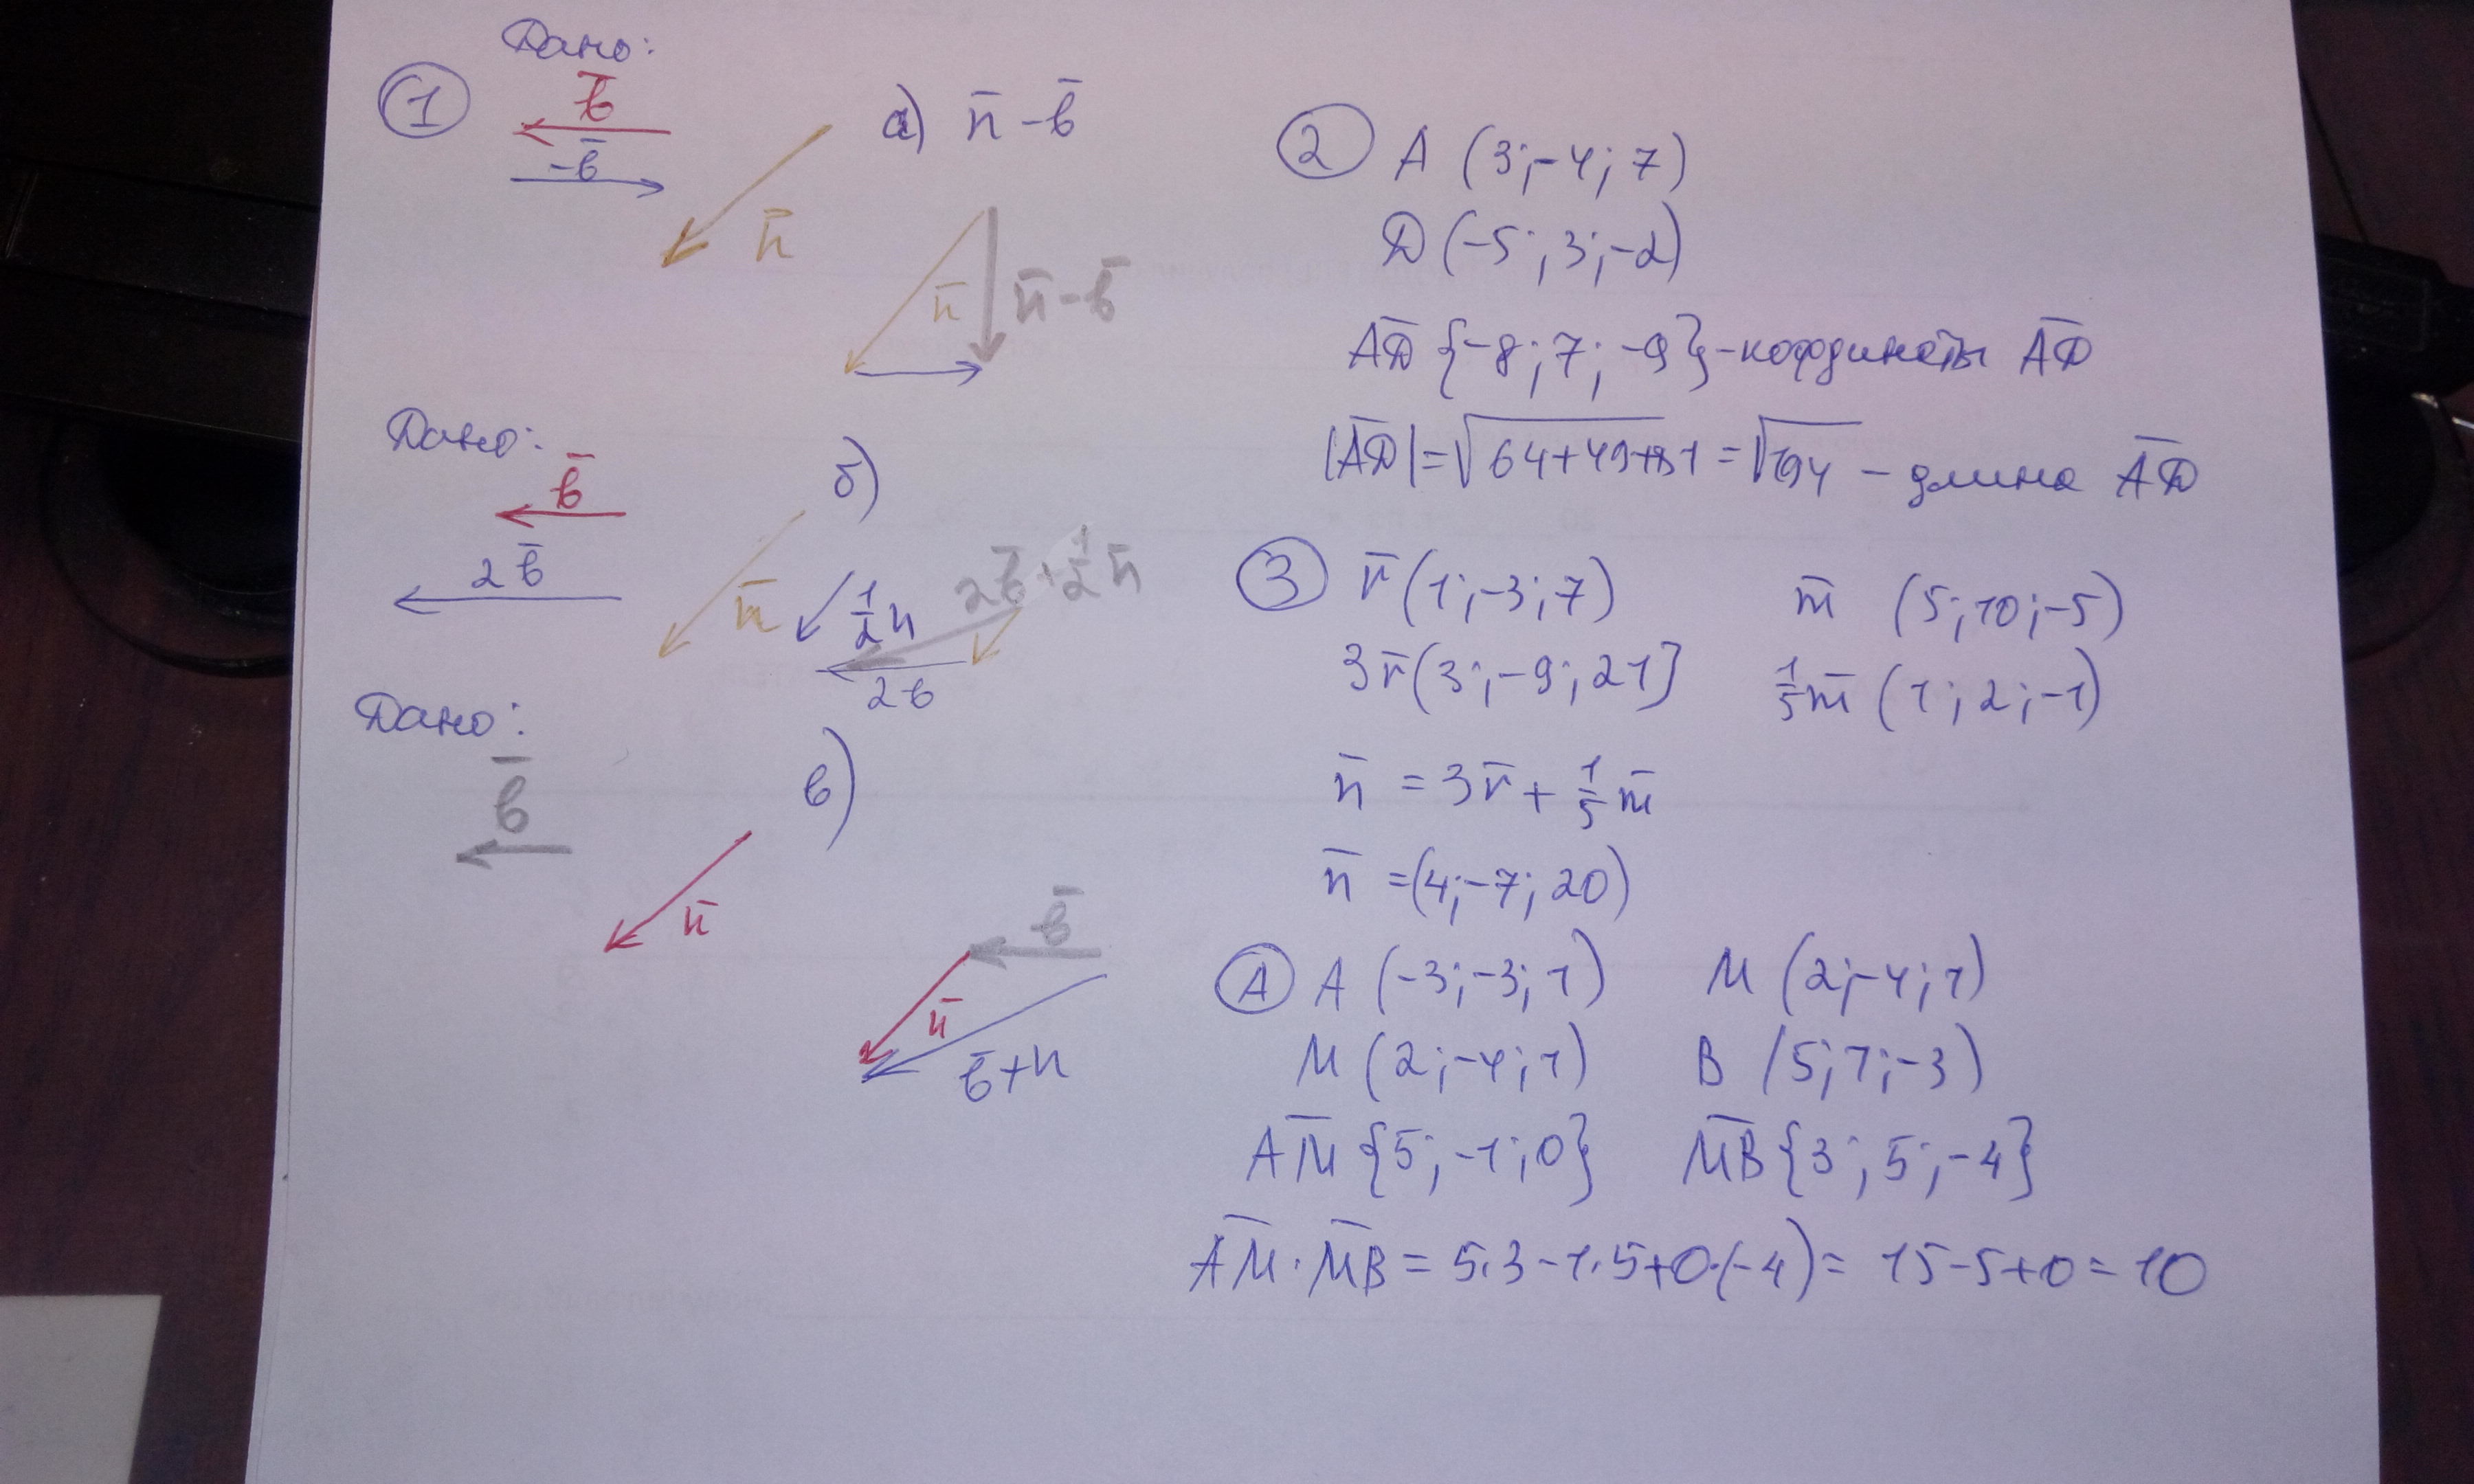 Дано:
① b̄
-b̄
n̄
а) n̄ - b̄
n̄
n̄ - b̄
Дано:
b̄
2b̄
n̄
б)
1/2 n
2b̄ + 1/2 n̄
2b
Дано:
b̄
n̄
в)
b̄
n̄
b̄+n
② A (3;-4;7)
D (-5;3;-2)
AD̄ {-8;7;-9} - координаты AD̄
|AD̄| = √64+49+81 = √194 - длина AD̄
③ r̄ (1;-3;7) m̄ (5;10;-5)
3r̄ (3;-9;21} 1/5 m̄ (1;2;-1)
n̄ = 3r̄ + 1/5 m̄
n̄ = (4;-7;20)
Ⓐ A (-3;-3;1) M (2;-4;1)
M (2;-4;1) B (5;1;-3)
AM̄ {5;-1;0} MB̄ {3;5;-4}
AM̄ · MB̄ = 5·3-1·5+0·(-4) = 15-5+0=10